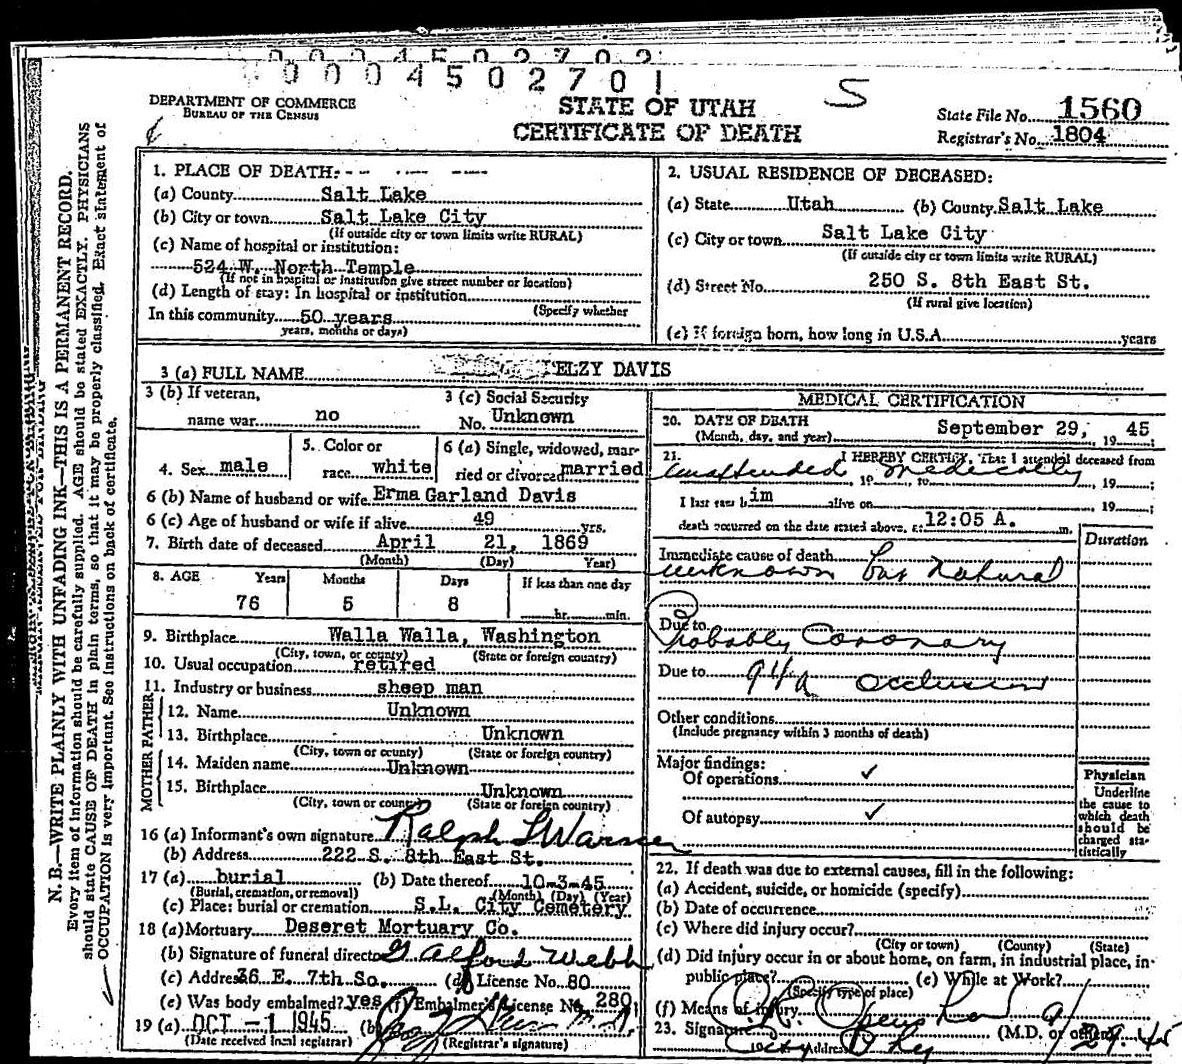 0 0 0 4 5 0 2 7 0 2
0 0 0 4 5 0 2 7 0 1
S
DEPARTMENT OF COMMERCE
BUREAU OF THE CENSUS
STATE OF UTAH
CERTIFICATE OF DEATH
State File No. 1560
Registrar's No. 1804
N. B.—WRITE PLAINLY WITH UNFADING INK—THIS IS A PERMANENT RECORD.
Every item of information should be carefully supplied. AGE should be stated EXACTLY. PHYSICIANS
should state CAUSE OF DEATH in plain terms, so that it may be properly classified. Exact statement of
OCCUPATION is very important. See instructions on back of certificate.
1. PLACE OF DEATH:
(a) County Salt Lake
(b) City or town Salt Lake City
(If outside city or town limits write RURAL)
(c) Name of hospital or institution:
524 W. North Temple
(If not in hospital or institution give street number or location)
(d) Length of stay: In hospital or institution
(Specify whether
In this community 50 years
years, months or days)
2. USUAL RESIDENCE OF DECEASED:
(a) State Utah (b) County Salt Lake
(c) City or town Salt Lake City
(If outside city or town limits write RURAL)
(d) Street No. 250 S. 8th East St.
(If rural give location)
(e) If foreign born, how long in U.S.A. years
3 (a) FULL NAME ELZY DAVIS
3 (b) If veteran,
name war no
3 (c) Social Security
No. Unknown
4. Sex male
5. Color or
race white
6 (a) Single, widowed, mar-
ried or divorced married
6 (b) Name of husband or wife Erma Garland Davis
6 (c) Age of husband or wife if alive 49 yrs.
7. Birth date of deceased April 21, 1869
(Month) (Day) Year)
8. AGE Years Months Days If less than one day
76 5 8 hr. min.
9. Birthplace Walla Walla, Washington
(City, town, or county) (State or foreign country)
10. Usual occupation retired
11. Industry or business sheep man
FATHER
12. Name Unknown
13. Birthplace Unknown
(City, town or county) (State or foreign country)
MOTHER
14. Maiden name Unknown
15. Birthplace Unknown
(City, town or county) (State or foreign country)
16 (a) Informant's own signature Ralph L Warner
(b) Address 222 S. 8th East St.
17 (a) burial (b) Date thereof 10-3-45
(Burial, cremation, or removal) (Month) (Day) (Year)
(c) Place: burial or cremation S.L. City Cemetery
18 (a) Mortuary Deseret Mortuary Co.
(b) Signature of funeral director G Alford Webb
(c) Address 36 E. 7th So. (d) License No. 80
(e) Was body embalmed? yes (f) Embalmer's License No. 280
19 (a) OCT -1 1945 (b)
(Date received local registrar) (Registrar's signature)
MEDICAL CERTIFICATION
20. DATE OF DEATH
(Month, day, and year) September 29, 19 45;
21. I HEREBY CERTIFY, That I attended deceased from
unattended medically, 19 to , 19 ;
I last saw him alive on , 19 ;
death occurred on the date stated above, at 12:05 A. m.
Duration
Immediate cause of death
unknown but natural
Due to
Probably Coronary
Due to 94a occlusion
Other conditions
(Include pregnancy within 3 months of death)
Major findings:
Of operations ✓
Of autopsy ✓
Physician
Underline
the cause to
which death
should be
charged sta-
tistically
22. If death was due to external causes, fill in the following:
(a) Accident, suicide, or homicide (specify)
(b) Date of occurrence
(c) Where did injury occur?
(City or town) (County) (State)
(d) Did injury occur in or about home, on farm, in industrial place, in
public place? (e) While at Work?
(Specify type of place)
(f) Means of injury
23. Signature (M.D. or other) 9/29-45
Address City